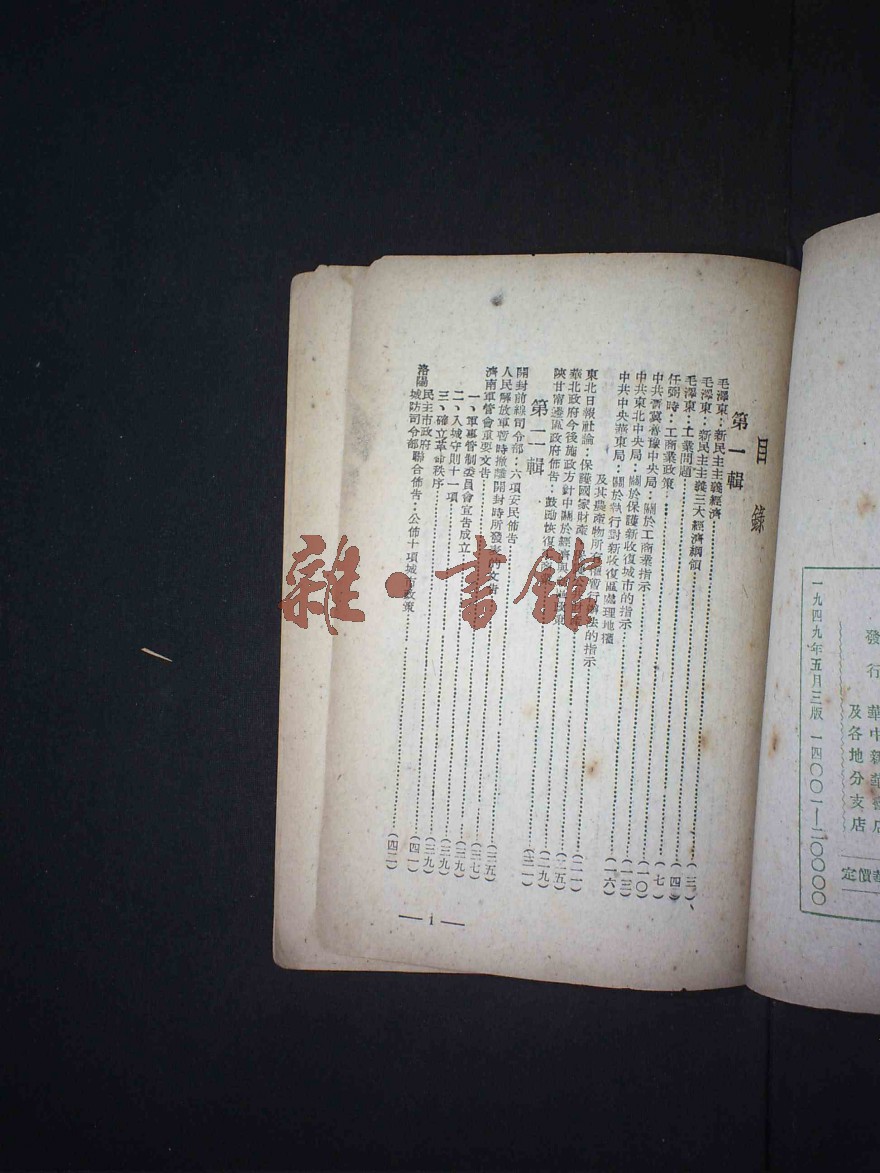 發行 華中新華書店
及各地分支店
一九四九年五月三版 一四〇〇一—二〇〇〇〇
定價
目錄
第一輯
毛澤東：新民主主義經濟
毛澤東：新民主主義三大經濟綱領
毛澤東：工業問題
任弼時：工商業政策
中共晉冀魯豫中央局：關於工商業指示
中共東北中央局：關於保護新收復城市的指示
中共中央華東局：關於執行對新收復區處理地權
及其農產物所有權暫行辦法的指示
東北日報社論：保護國家財產
華北政府今後施政方針中關於經濟
陝甘甯邊區政府佈告：鼓勵恢復
第二輯
開封前線司令部：六項安民佈告
人民解放軍暫時撤離開封時所發表的文告
濟南軍管會重要文告
一、軍事管制委員會宣告成立
二、入城守則十一項
三、確立革命秩序
洛陽民主市政府
城防司令部聯合佈告：公佈十項城市政策
（三）
（四）
（七）
（一〇）
（一三）
（一六）
（二一）
（二五）
（二九）
（三一）
（三五）
（三七）
（三九）
（三九）
（三九）
（四一）
（四二）
— 1 —
雜·書館